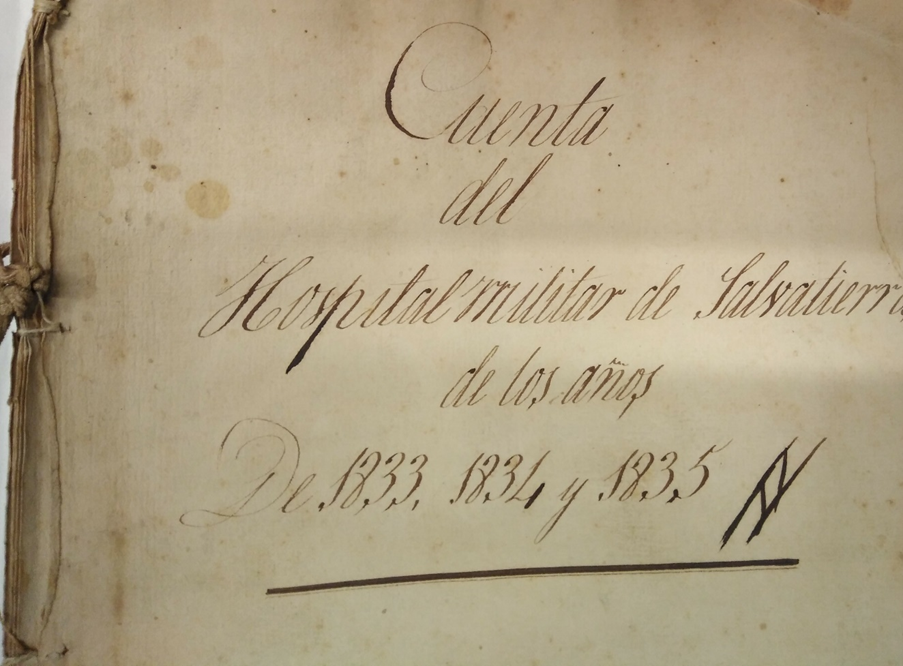 Cuenta
del
Hospital militar de Salvatierra
de los años
De 1833, 1834 y 1835